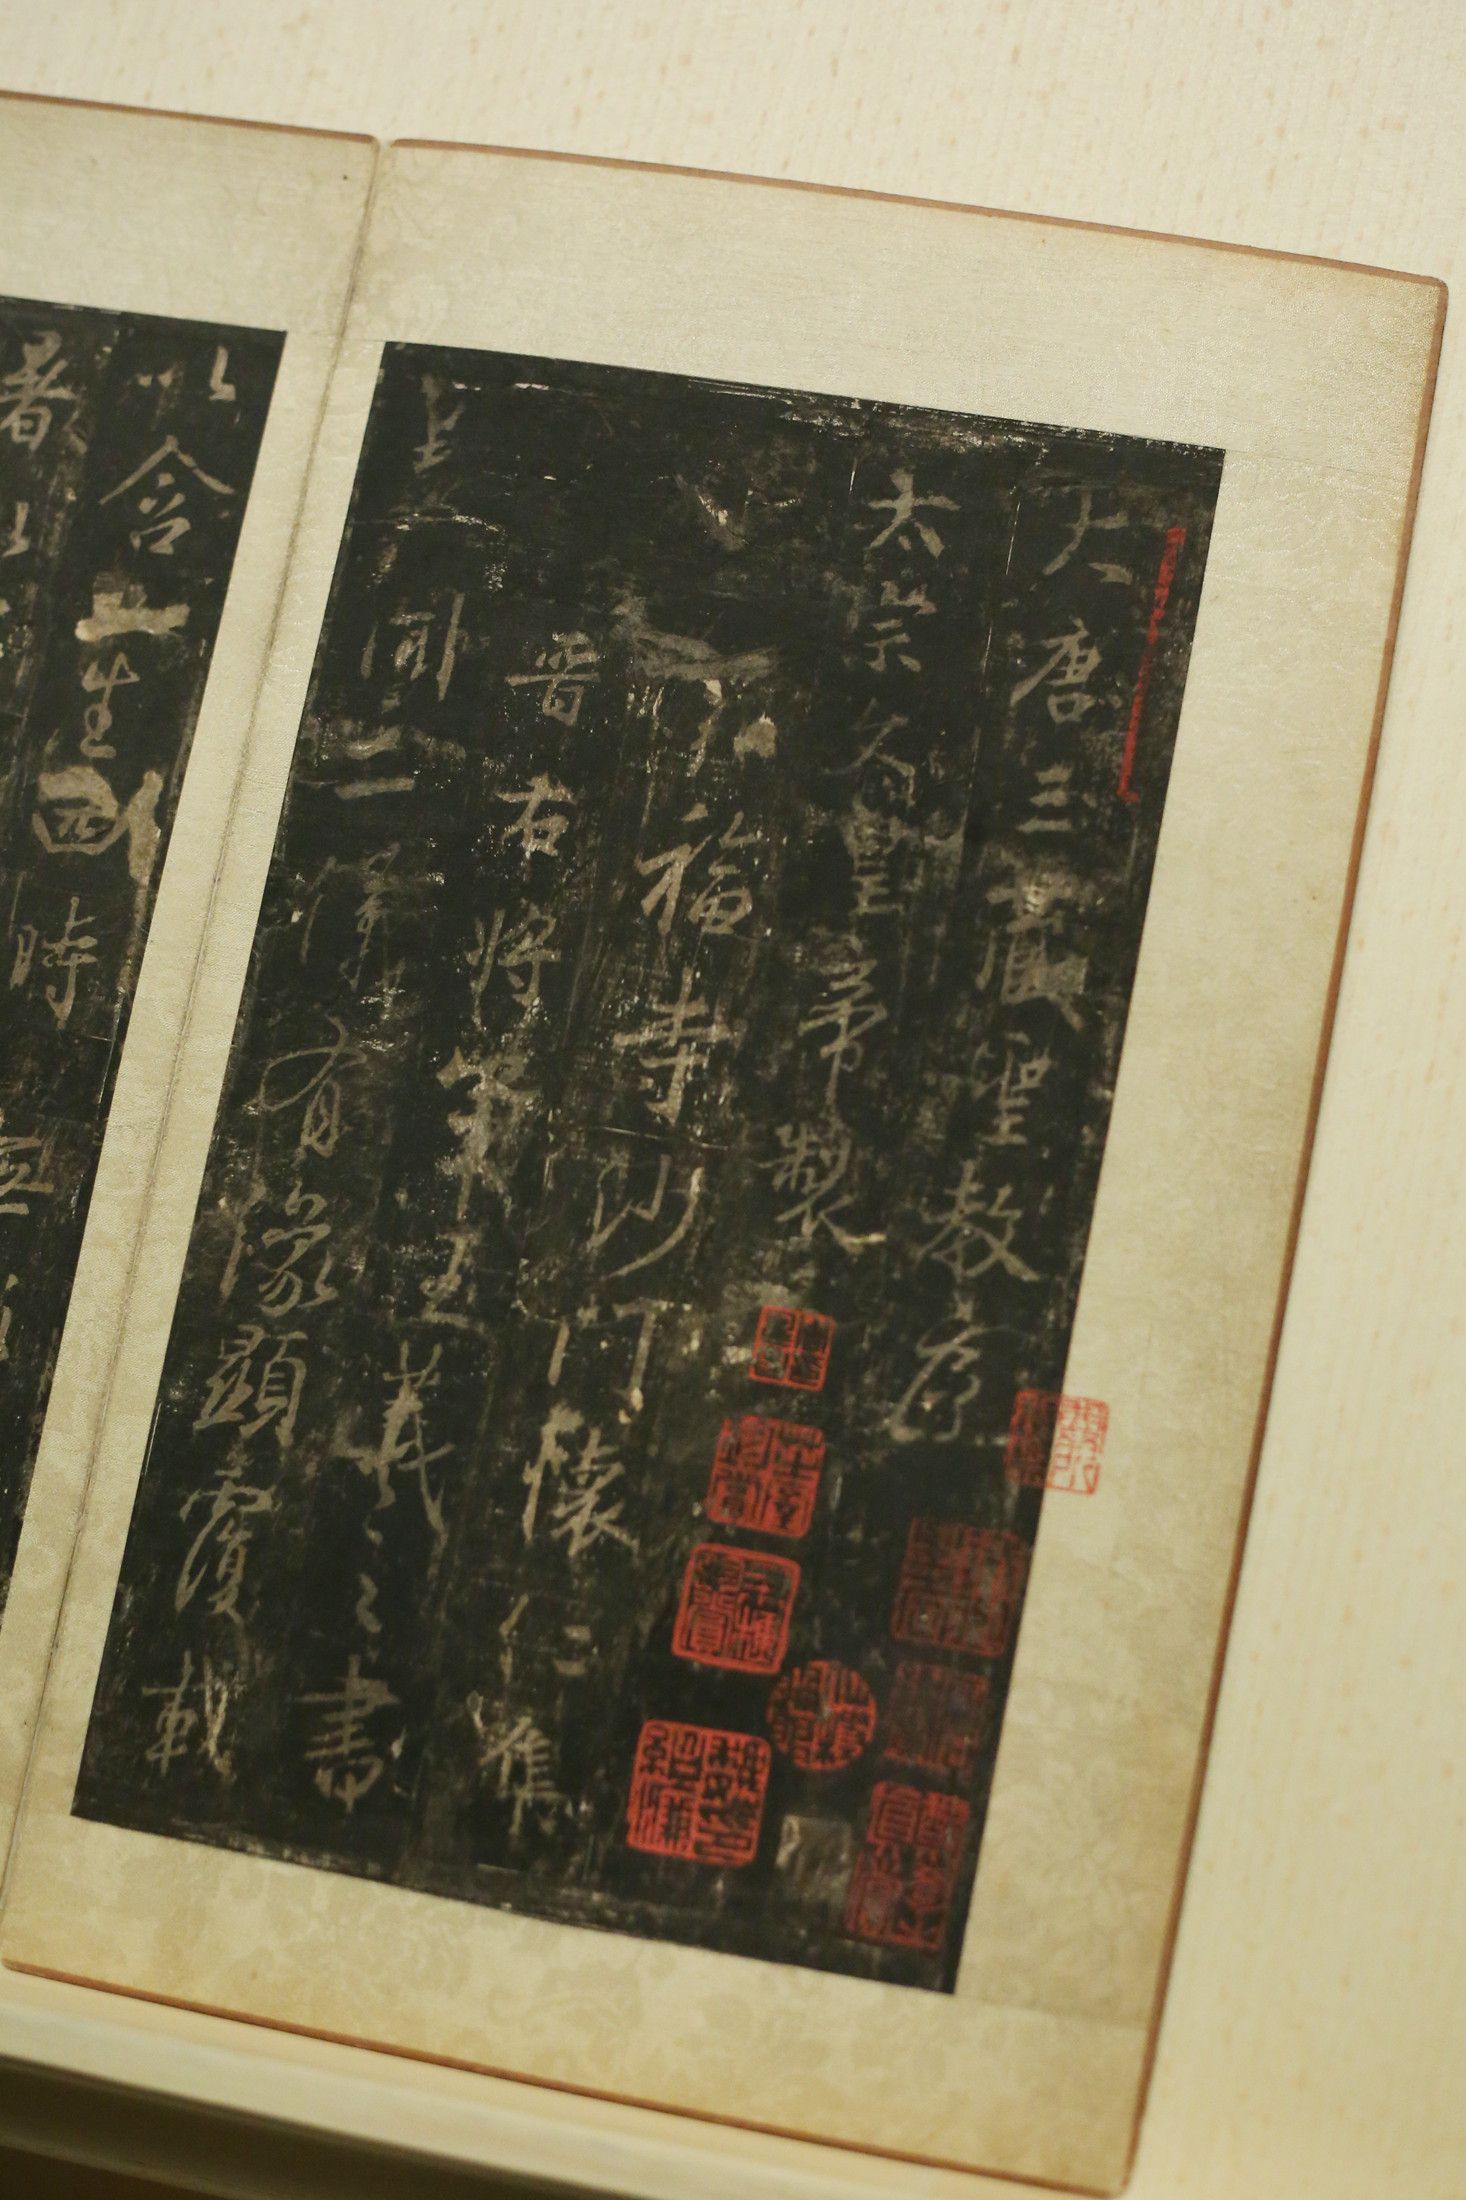 大唐三藏聖教序
太宗文皇帝製
弘福寺沙門懷仁集
晉右將軍王羲之書
蓋聞二儀有像顯覆載
以含生四時無
暑以